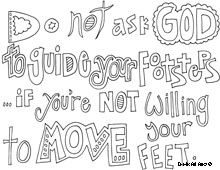 Do not ask GOD
to guide your footsteps
...if you're NOT willing
to MOVE your
FEET.